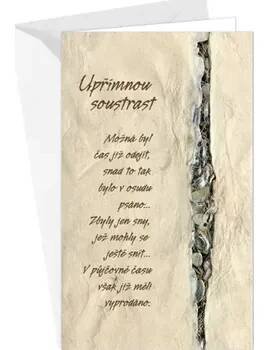 Upřímnou
soustrast
Možná byl
čas již odejít,
snad to tak
bylo v osudu
psáno...
Zbyly jen sny,
jež mohly se
ještě snít...
V půjčovně času
však již měli
vyprodáno.